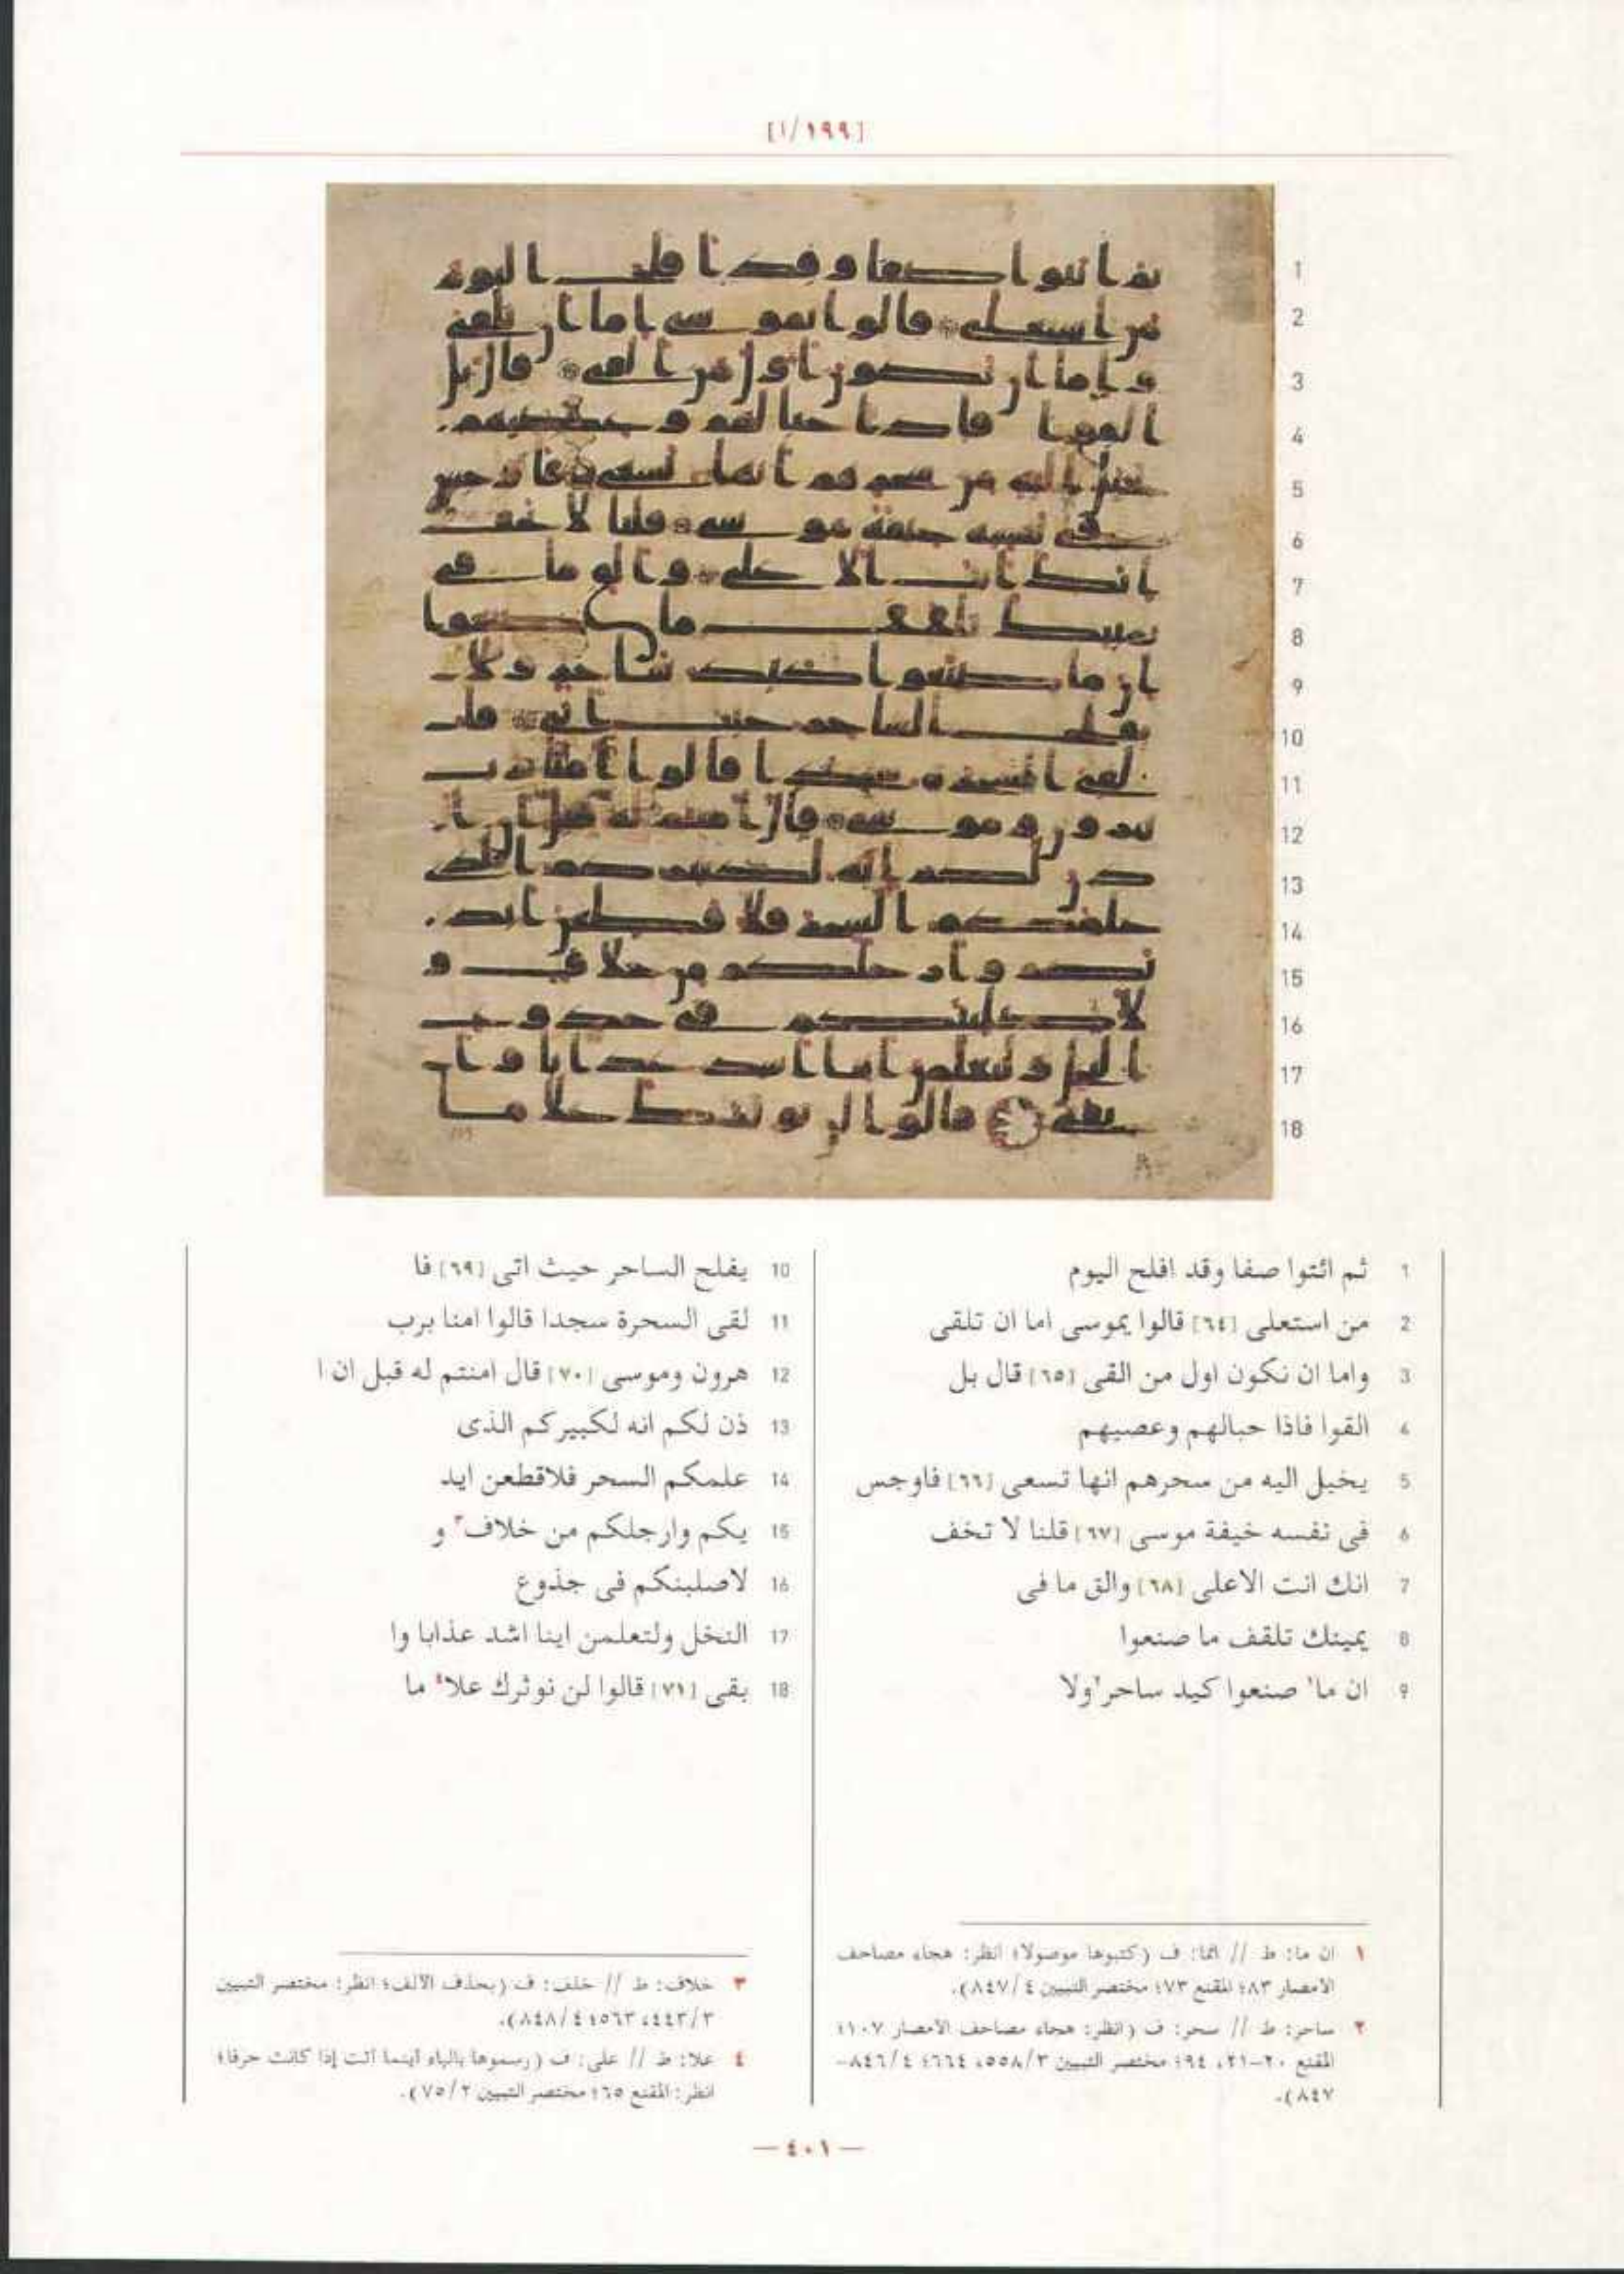 [١/١٩٩]
1 ثم ائتوا صفا وقد افلح اليوم
2 من استعلى [٦٤] قالوا يموسى اما ان تلقى
3 واما ان نكون اول من القى [٦٥] قال بل
4 القوا فاذا حبالهم وعصيهم
5 يخيل اليه من سحرهم انها تسعى [٦٦] فاوجس
6 فى نفسه خيفة موسى [٦٧] قلنا لا تخف
7 انك انت الاعلى [٦٨] والق ما فى
8 يمينك تلقف ما صنعوا
9 ان ما١ صنعوا كيد ساحر٢ ولا
10 يفلح الساحر حيث اتى [٦٩] فا
11 لقى السحرة سجدا قالوا امنا برب
12 هرون وموسى [٧٠] قال امنتم له قبل ان ا
13 ذن لكم انه لكبيركم الذى
14 علمكم السحر فلاقطعن ايد
15 يكم وارجلكم من خلاف٣ و
16 لاصلبنكم فى جذوع
17 النخل ولتعلمن اينا اشد عذابا وا
18 بقى [٧١] قالوا لن نوثرك علا٤ ما
١ ان ما: ط // انما: ف (كتبوها موصولا؛ انظر: هجاء مصاحف
الامصار ٨٣؛ المقنع ٧٣؛ مختصر التبيين ٤/٨٤٧).
٢ ساحر: ط // سحر: ف (انظر: هجاء مصاحف الامصار ١٠٧؛
المقنع ٢٠-٢١، ٩٤؛ مختصر التبيين ٣/٥٥٨، ٦٦٤؛ ٤/٨٤٦-
٨٤٧).
٣ خلاف: ط // خلف: ف (بحذف الالف؛ انظر: مختصر التبيين
٣/٤٤٣، ٥٦٣؛ ٤/٨٤٨).
٤ علا: ط // على: ف (رسموها بالياء اينما اتت إذا كانت حرفا؛
انظر: المقنع ٦٥؛ مختصر التبيين ٢/٧٥).
— ٤٠١ —